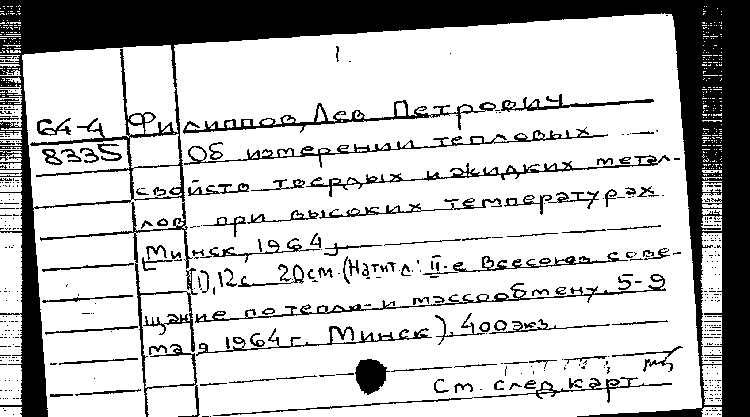 1.
64-4 Филиппов, Лев Петрович
8335 Об измерении тепловых
свойств твердых и жидких метал-
лов при высоких температурах
[Минск, 1964]
[1], 12 с. 20 см. (На тит л.: II-е Всесоюз сове-
щание по тепло- и массообмену. 5-9
мая 1964 г. Минск). 400 экз.
См. след. карт.